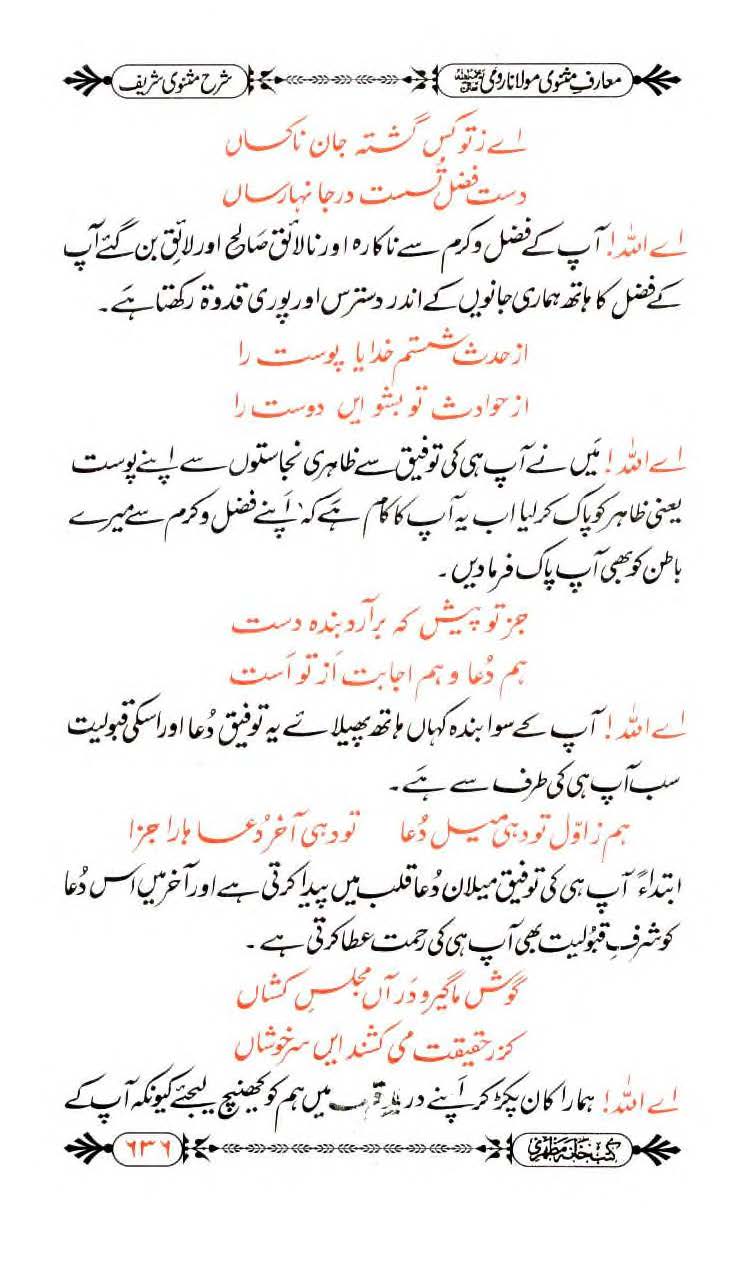 معارفِ مثنوی مولانا رومی رحمۃ اللہ تعالیٰ علیہ
شرح مثنوی شریف
اے ز تو کس گشتہ جان ناکساں
دست فضل تُست در جانہا رساں
اے اللہ! آپ کے فضل و کرم سے ناکارہ اور نالائق صَالح اور لائِق بن گئے آپ
کے فضل کا ہاتھ ہماری جانوں کے اندر دسترس اور پوری قدوۃ رکھتا ہَے۔
از حدث شستم خدایا پوست را
از حوادث تو بشو ایں دوست را
اے اللہ! مَیں نے آپ ہی کی توفیق سے ظاہری نجاستوں سے اپنے پوست
یعنی ظاہر کو پاک کر لیا اب یہ آپ کا کام ہَے کہ اَپنے فضل و کرم سے میرے
باطن کو بھی آپ پاک فرما دیں۔
جز تو پیش کہ بر آرد بندہ دست
ہم دُعا و ہم اجابت اَز تو اَست
اے اللہ! آپ کے سوا بندہ کہاں ہاتھ پھیلائے یہ توفیق دُعا اور اسکی قبولیت
سب آپ ہی کی طرف سے ہَے۔
ہم ز اوّل تو دہی میل دُعا تو دہی آخر دُعا ہا را جزا
ابتداءً آپ ہی کی توفیق میلان دُعا قلب میں پیدا کرتی ہے اور آخر میں اس دُعا
کو شرفِ قبُولیت بھی آپ ہی کی رحمت عطا کرتی ہے۔
گوش ما گیر و دَر آں مجلس کشاں
کز رحقیقت می کشند ایں سرخوشاں
اے اللہ! ہمارا کان پکڑ کر اَپنے در میں ہم کو کھینچ لیجئے کیونکہ آپ کے
کتب خانہ مظہری
۶۳۶